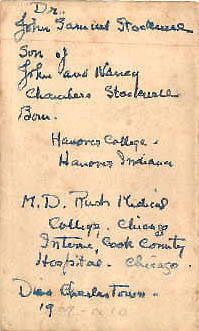 Dr.
John Samuel Stockwell
Son of
John and Nancy
Chambers Stockwell
Born.
Hanover College.
Hanover Indiana
M.D. Rush Medical
College, Chicago
Interne, Cook County
Hospital. Chicago.
Died Charlestown.
19